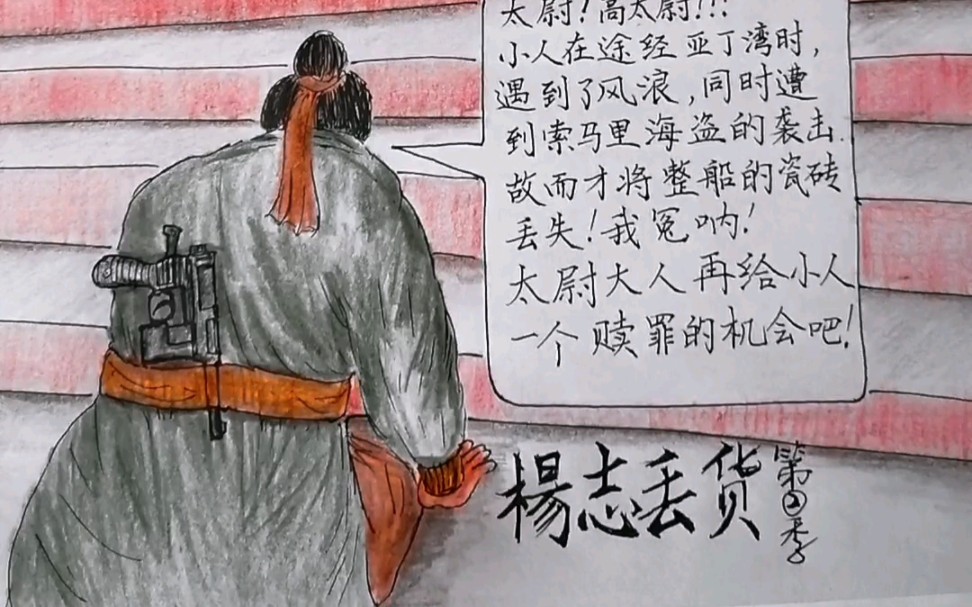 太尉！高太尉！！！
小人在途经亚丁湾时，
遇到了风浪，同时遭
到索马里海盗的袭击.
故而才将整船的瓷砖
丢失！我冤呐！
太尉大人再给小人
一个赎罪的机会吧！
楊志丢货
第四季